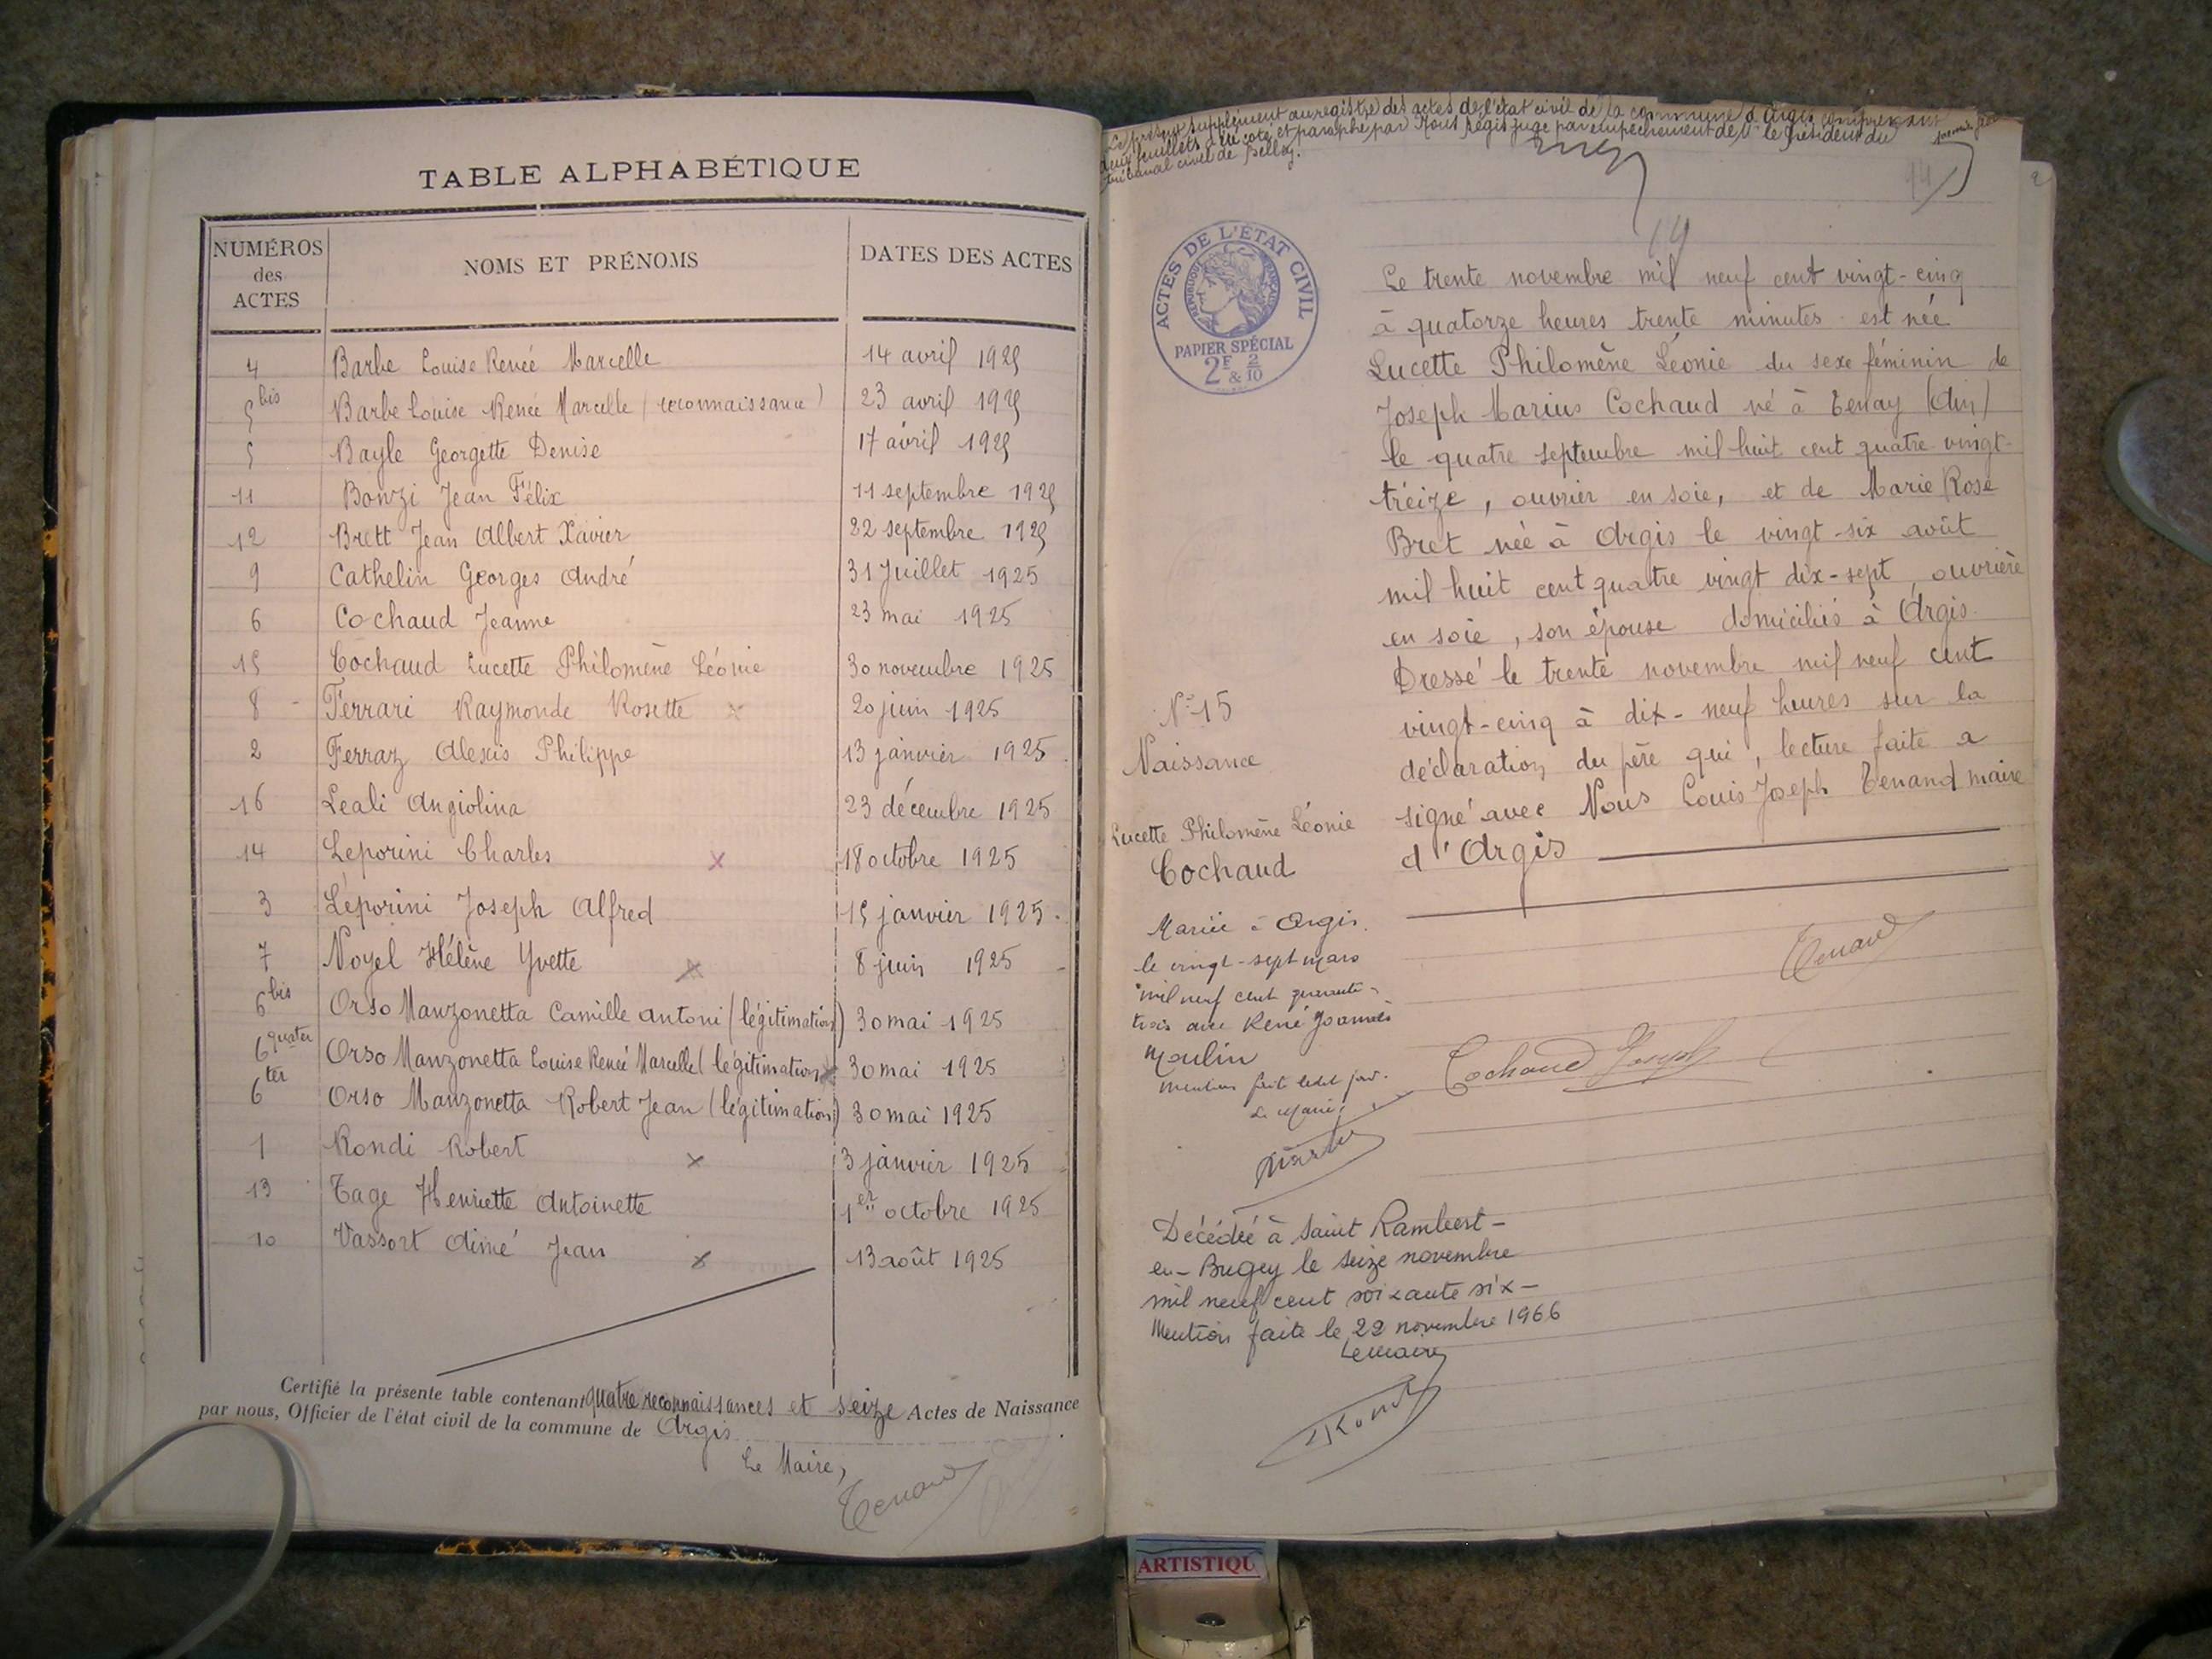 TABLE ALPHABÉTIQUE
NUMÉROS des ACTES NOMS ET PRÉNOMS DATES DES ACTES
4 Barbe Louise Renée Marcelle 14 avril 1925
5 bis Barbe Louise Renée Marcelle (reconnaissance) 23 avril 1925
5 Bayle Georgette Denise 17 avril 1925
11 Bonzi Jean Félix 11 septembre 1925
12 Brett Jean Albert Xavier 22 septembre 1925
9 Cathelin Georges André 31 Juillet 1925
6 Cochaud Jeanne 23 mai 1925
15 Cochaud Lucette Philomène Léonie 30 novembre 1925
8 Ferrari Raymonde Rosette x 20 juin 1925
2 Ferraz Alexis Philippe 13 janvier 1925
16 Leali Angiolina 23 décembre 1925
14 Leporini Charles x 18 octobre 1925
3 Léporini Joseph Alfred 15 janvier 1925
7 Noyel Hélène Yvette x 8 juin 1925
6 bis Orso Manzonetta Camille Antoni (légitimation) 30 mai 1925
6 quater Orso Manzonetta Louise Renée Marcelle (légitimation) 30 mai 1925
6 ter Orso Manzonetta Robert Jean (légitimation) 30 mai 1925
1 Rondi Robert x 3 janvier 1925
13 Tage Henriette Antoinette 1er octobre 1925
10 Vassort Aimé Jean x 13 août 1925
Certifié la présente table contenant quatre reconnaissances et seize Actes de Naissance
par nous, Officier de l'état civil de la commune de Argis
Le Maire,
Tenand
Le présent supplément au registre des actes de l'état civil de la commune d'Argis comprenant
deux feuillets a été coté et paraphé par Nous Régis juge par empêchement de Mr le Président du
tribunal civil de Belley.
14
ACTES DE L'ÉTAT CIVIL
RÉPUBLIQUE FRANÇAISE
PAPIER SPÉCIAL
2F & 2/10
Le trente novembre mil neuf cent vingt-cinq
à quatorze heures trente minutes est née
Lucette Philomène Léonie du sexe féminin de
Joseph Marius Cochaud né à Tenay (Ain)
le quatre septembre mil huit cent quatre-vingt-
treize, ouvrier en soie, et de Marie Rose
Bret née à Argis le vingt-six août
mil huit cent quatre vingt dix-sept, ouvrière
en soie, son épouse domiciliés à Argis.
Dressé le trente novembre mil neuf cent
vingt-cinq à dix-neuf heures sur la
déclaration du père qui, lecture faite a
signé avec Nous Louis Joseph Tenand maire
d'Argis
Tenand
Cochaud Joseph
N° 15
Naissance
Lucette Philomène Léonie
Cochaud
Mariée à Argis
le vingt-sept mars
mil neuf cent quarante-
trois avec René Joannès
Moulin
Mention faite ledit jour.
Le Maire,
Décédée à Saint Rambert-
en-Bugey le seize novembre
mil neuf cent soixante six-
Mention faite le 22 novembre 1966
Le Maire
ARTISTIQU